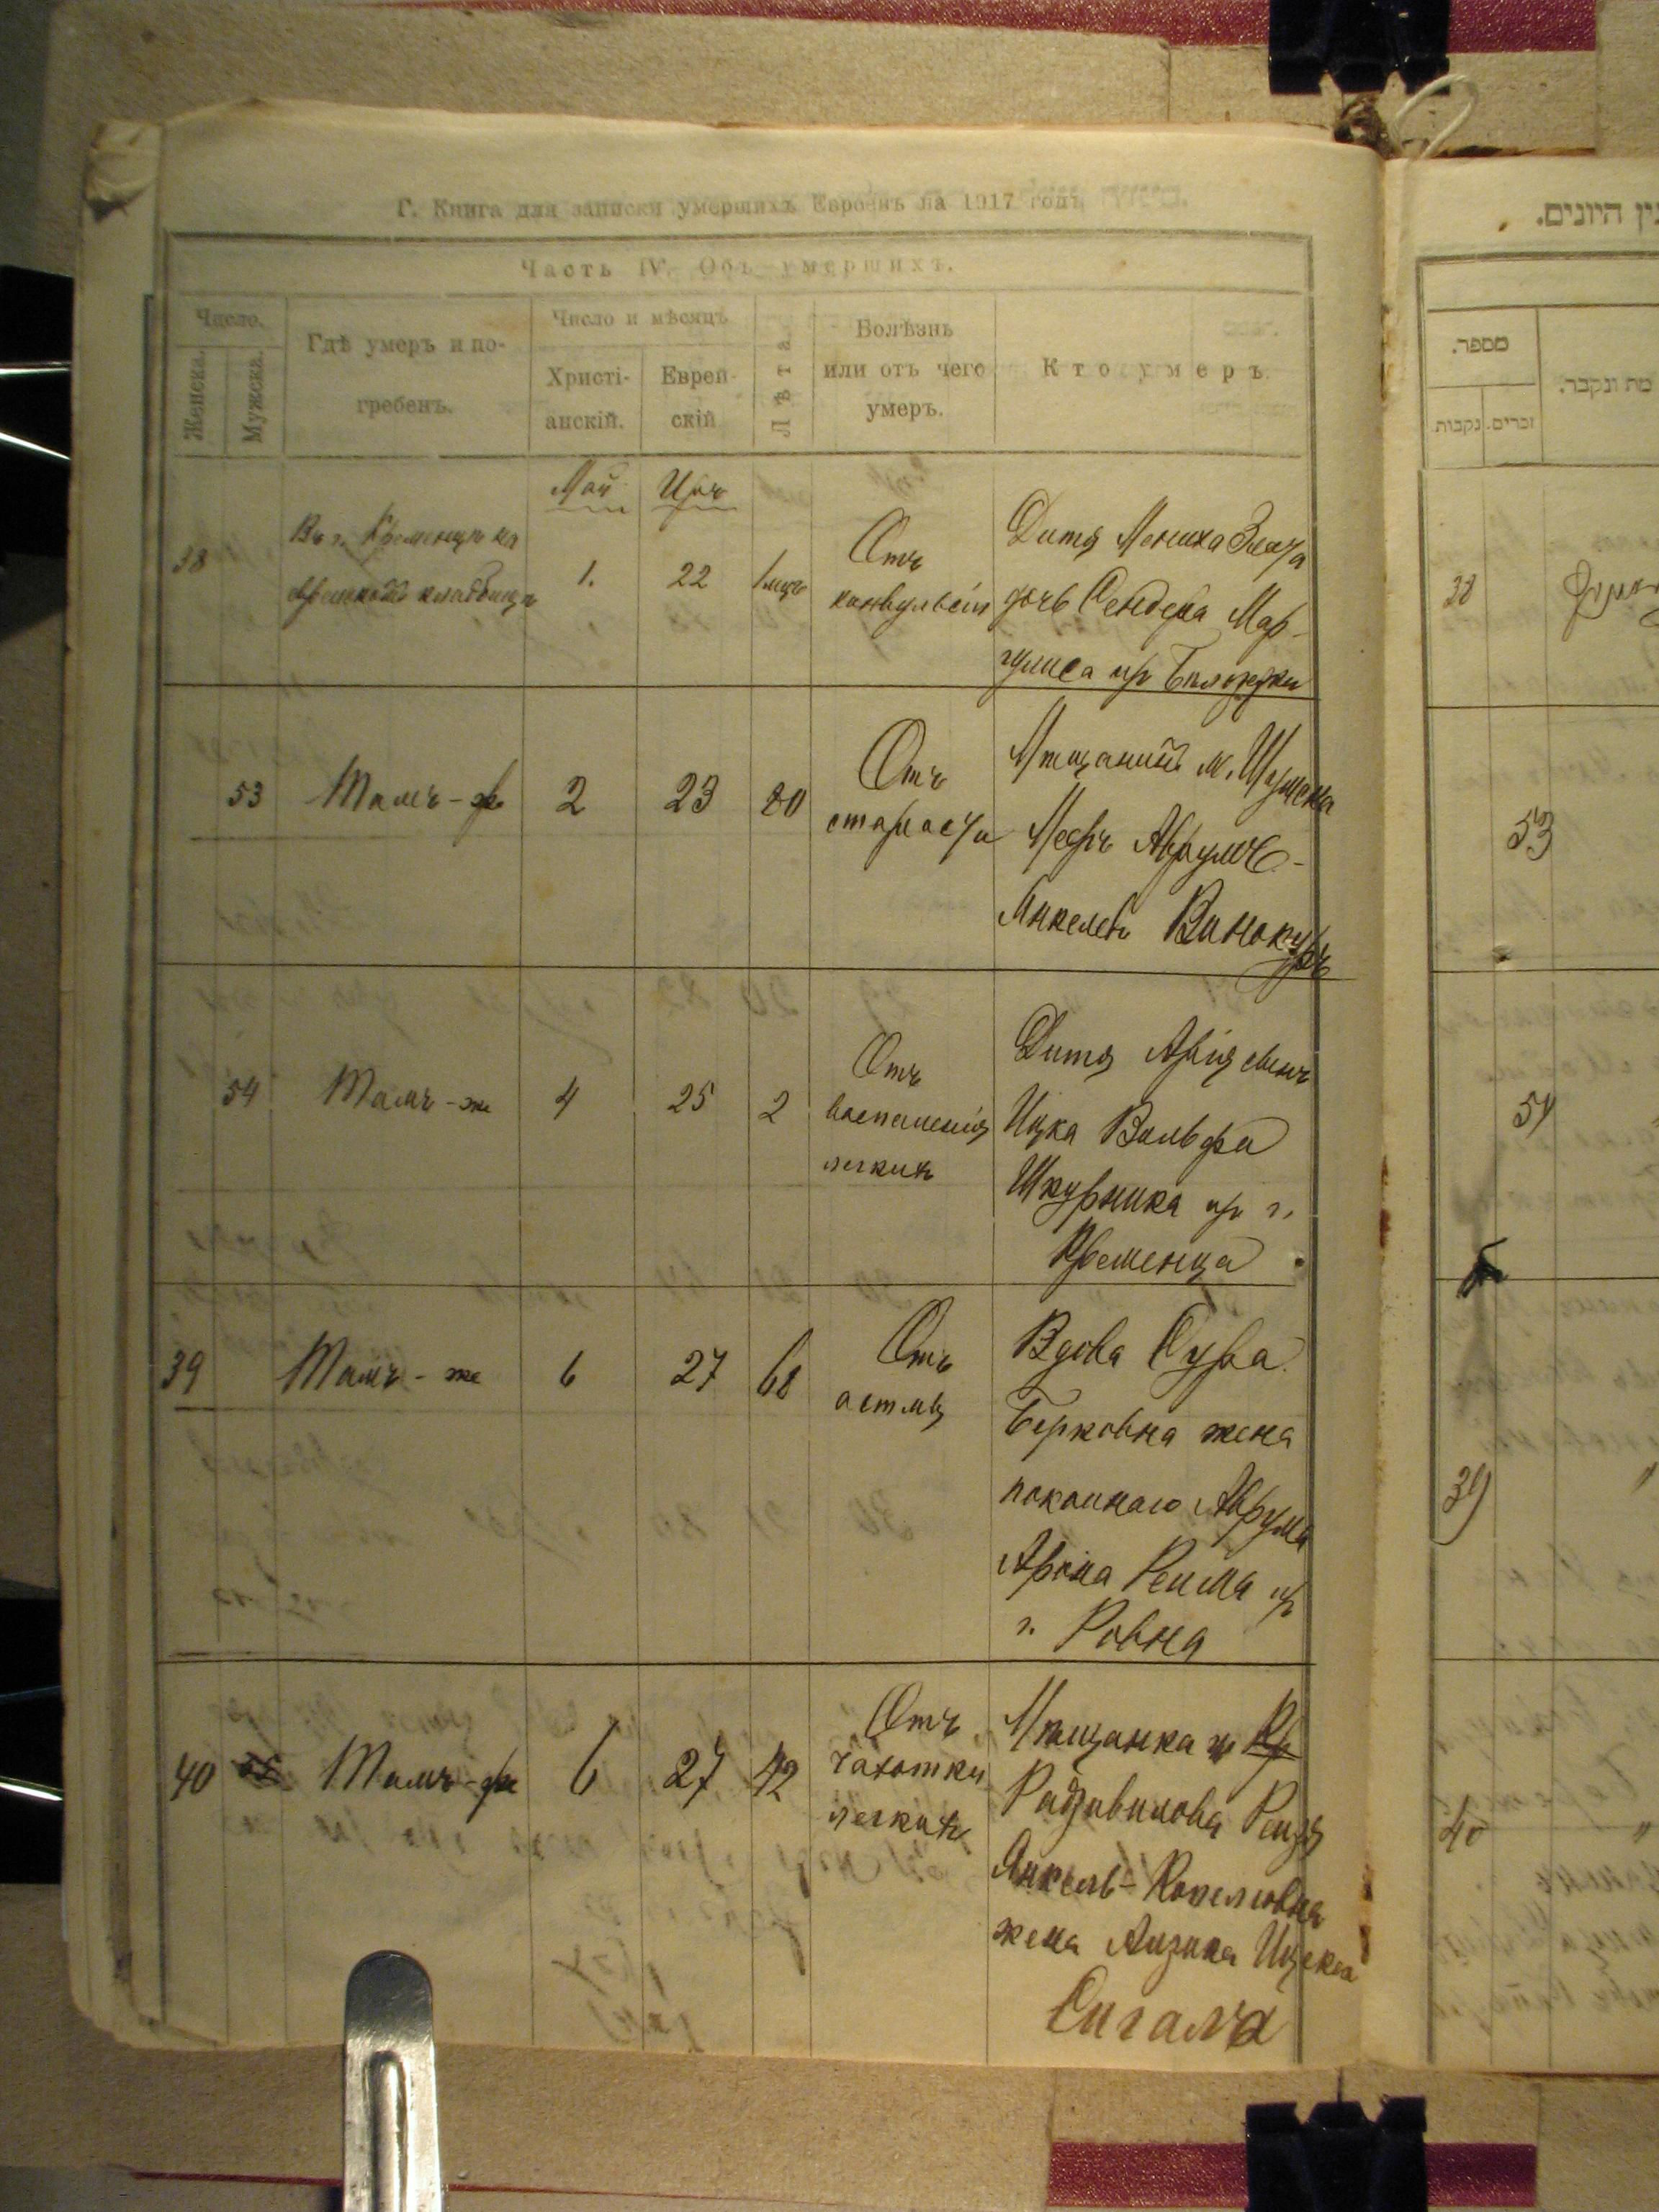 Г. Книга для записки умершихъ Евреевъ на 1917 годъ
Часть IV. Объ умершихъ.
Число.
Женска.
Мужска.
Гдѣ умеръ и по-
гребенъ.
Число и мѣсяцъ
Христі-
анскій.
Еврей-
скій
Лѣта.
Болѣзнь
или отъ чего
умеръ.
Кто умеръ.
Май
Іяръ
38
Въ г. Кременцѣ на
еврейскомъ кладбищѣ
1.
22
1 мѣс
Отъ
конвульсіи
Дитя
дочь Сендера Мар-
гулиса
53
Тамъ-же
2
23
80
Отъ
старости
Мѣщанинъ м. Шумска
Мееръ Аврумъ
Янкелевъ Винокуръ
54
Тамъ-же
4
25
2
Отъ
воспаленія
легкихъ
Дитя
Ицка Вольфа
Шкурника пр г.
Кременца
39
Тамъ-же
6
27
68
Отъ
астмы
Вдова Сура
Берковна жена
покойнаго Аврума
Арона пр
г. Ровна
40
Тамъ-же
6
27
42
Отъ
чахотки
легкихъ
Мѣщанка
Радзивилова Рейзя
Янкель-Копелювна
жена Айзика
Сигала
ין היונים.
מספר.
נקבות.
זכרים.
מת ונקבר.
38
53
54
39
40